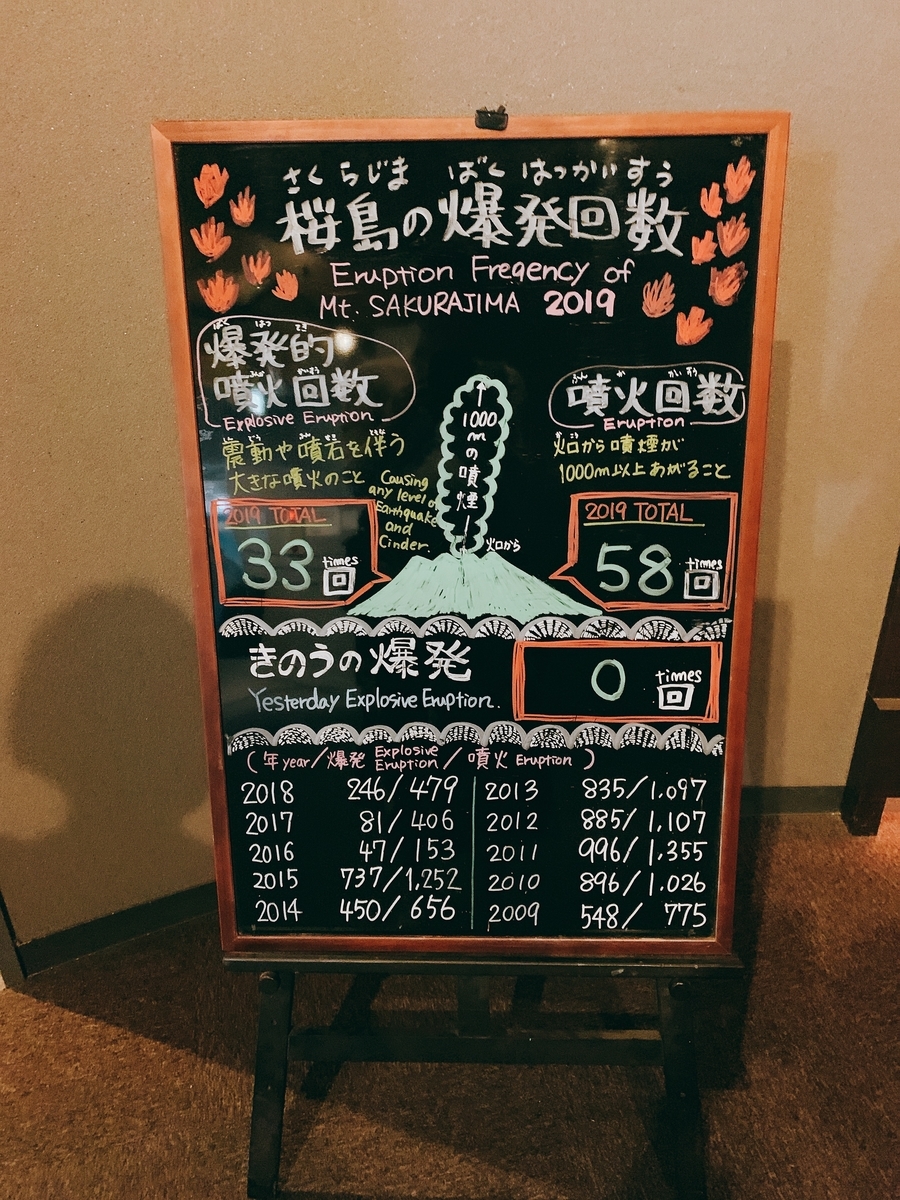 さくらじま ばくはつかいすう
桜島の爆発回数
Eruption Freqency of
Mt. SAKURAJIMA 2019
ばく はつ てき
爆発的
ふんか かいすう
噴火回数
Explosive Eruption
しんどう ふんせき ともな
震動や噴石を伴う
大きな噴火のこと
Causing
any level of
Earthquake
and
Cinder.
2019 TOTAL
33 times
回
↑
1000
m
の
噴
煙
火口から
ふん か かい すう
噴火回数
Eruption
火口から噴煙が
1000m以上あがること
2019 TOTAL
58 times
回
きのうの爆発
Yesterday Explosive Eruption.
0 times
回
(年year/爆発 Explosive Eruption/噴火 Eruption)
2018 246/479
2017 81/406
2016 47/153
2015 737/1,252
2014 450/656
2013 835/1,097
2012 885/1,107
2011 996/1,355
2010 896/1,026
2009 548/775